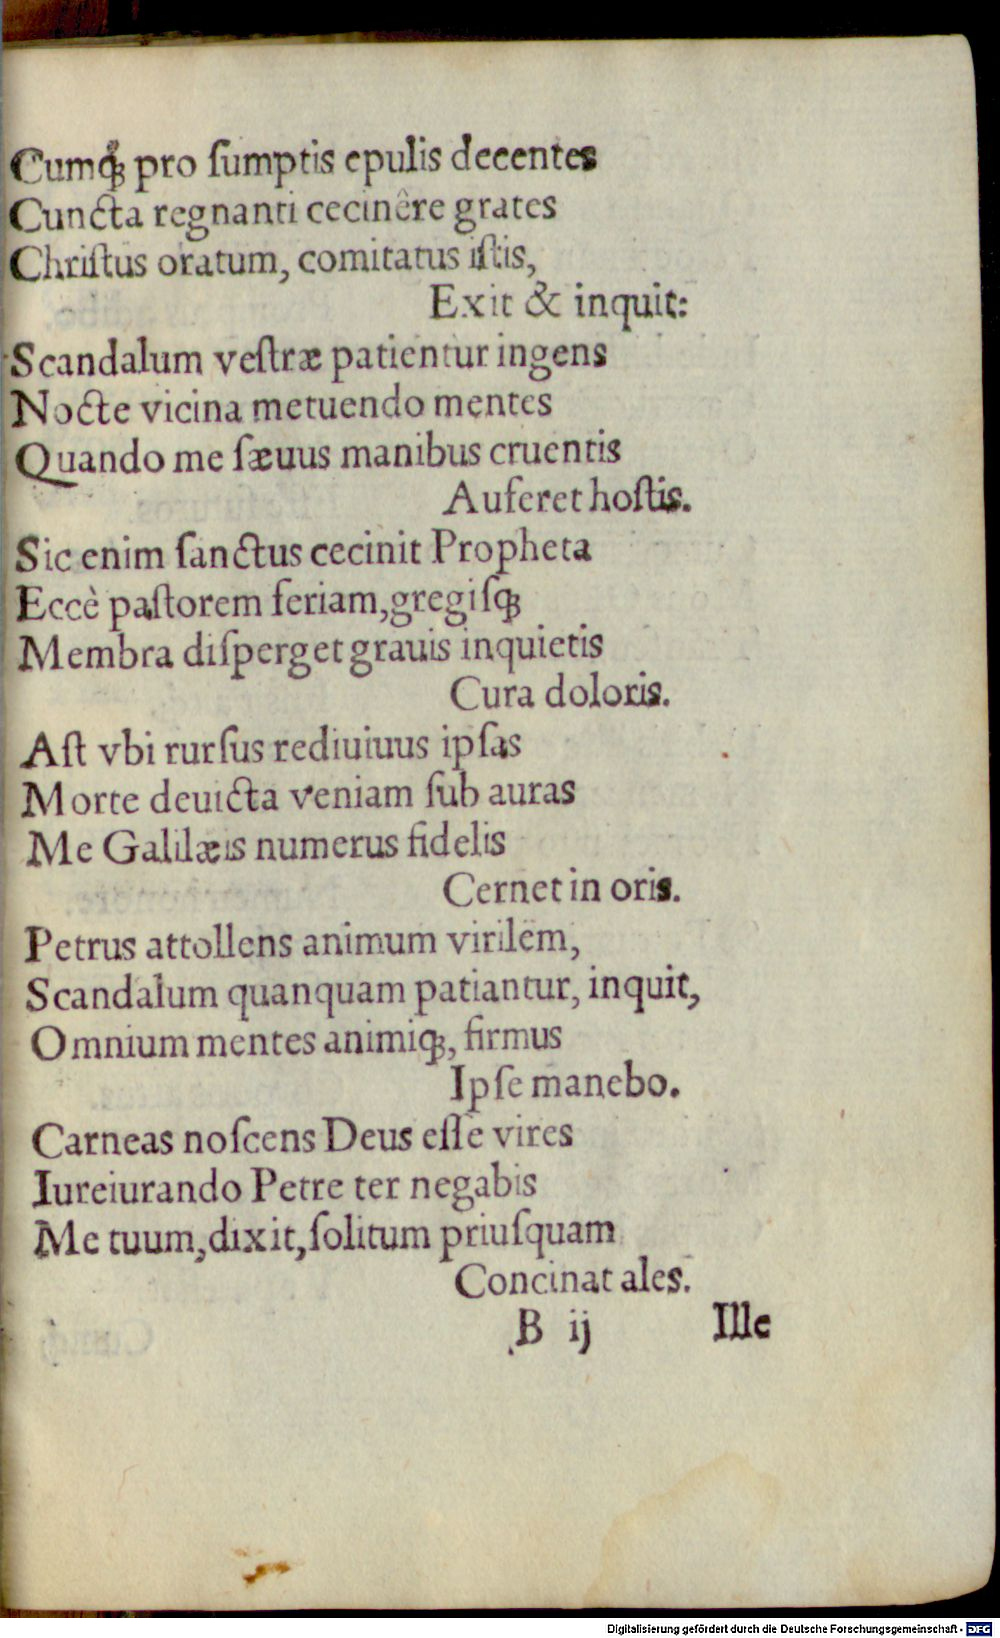 Cumq́ꝫ pro ſumptis epulis decentes
Cuncta regnanti cecinêre grates
Chriſtus oratum, comitatus iſtis,
Exit & inquit:
Scandalum veſtræ patientur ingens
Nocte vicina metuendo mentes
Quando me ſæuus manibus cruentis
Auferet hoſtis.
Sic enim ſanctus cecinit Propheta
Eccè paſtorem feriam, gregiſqꝫ
Membra diſperget grauis inquietis
Cura doloris.
Aſt vbi rurſus rediuiuus ipſas
Morte deuicta veniam ſub auras
Me Galilæis numerus fidelis
Cernet in oris.
Petrus attollens animum virilem,
Scandalum quanquam patiantur, inquit,
Omnium mentes animiqꝫ, firmus
Ipſe manebo.
Carneas noſcens Deus eſſe vires
Iureiurando Petre ter negabis
Me tuum, dixit, ſolitum priuſquam
Concinat ales.
B ij Ille
Digitalisierung gefördert durch die Deutsche Forschungsgemeinschaft - DFG